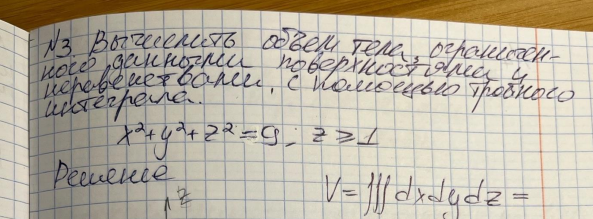 N3 Вычислить объем тела, ограничен-
ного данными поверхностями и
неравенствами, с помощью тройного
интеграла.
x²+y²+z²=9; z≥1
Решение
z V=∭dxdydz=